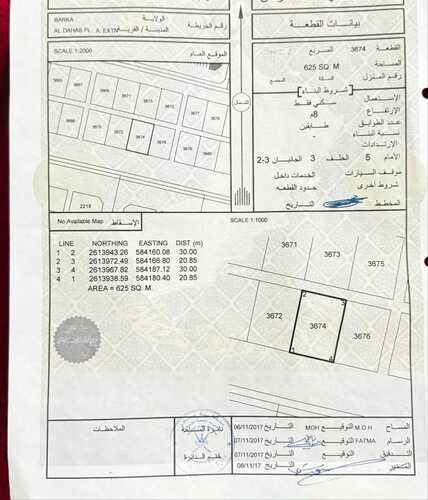 BARKA
الولاية
AL DAHAS PL. A. EXTN
المدينة / القرية
رقم الخريطة
SCALE 1:2000
الموقع العام
3671
3673
3672
3674
3676
2218
الشمال
بيانات القطعة
القطعة 3674 المربع
المساحة 625 SQ. M.
رقم المنزل
شروط البناء
الإستعمال سكني فقط
الإرتفاع 8م
عدد الطوابق طابقين
نسبة البناء -
الإرتدادات
الأمام 5 الخلف 3 الجانبان 3-2
موقف السيارات الخدمات داخل
شروط أخرى حدود القطعه
المخطط التاريخ
No Available Map
الإسقاط
SCALE 1:1000
LINE NORTHING EASTING DIST (m)
1 2 2613943.26 584160.08 30.00
2 3 2613972.49 584166.80 20.85
3 4 2613967.82 584187.12 30.00
4 1 2613938.59 584180.40 20.85
AREA = 625 SQ. M.
3671
3673
3675
3672
3674
3676
1
2
3
4
الملاحظات
دائرة المساحة
ختم الدائرة
المساح M.O.H التوقيع MOH التاريخ 06/11/2017
الرسام FATMA التوقيع التاريخ 07/11/2017
التدقيق التوقيع التاريخ 07/11/2017
المدير التوقيع التاريخ 08/11/17